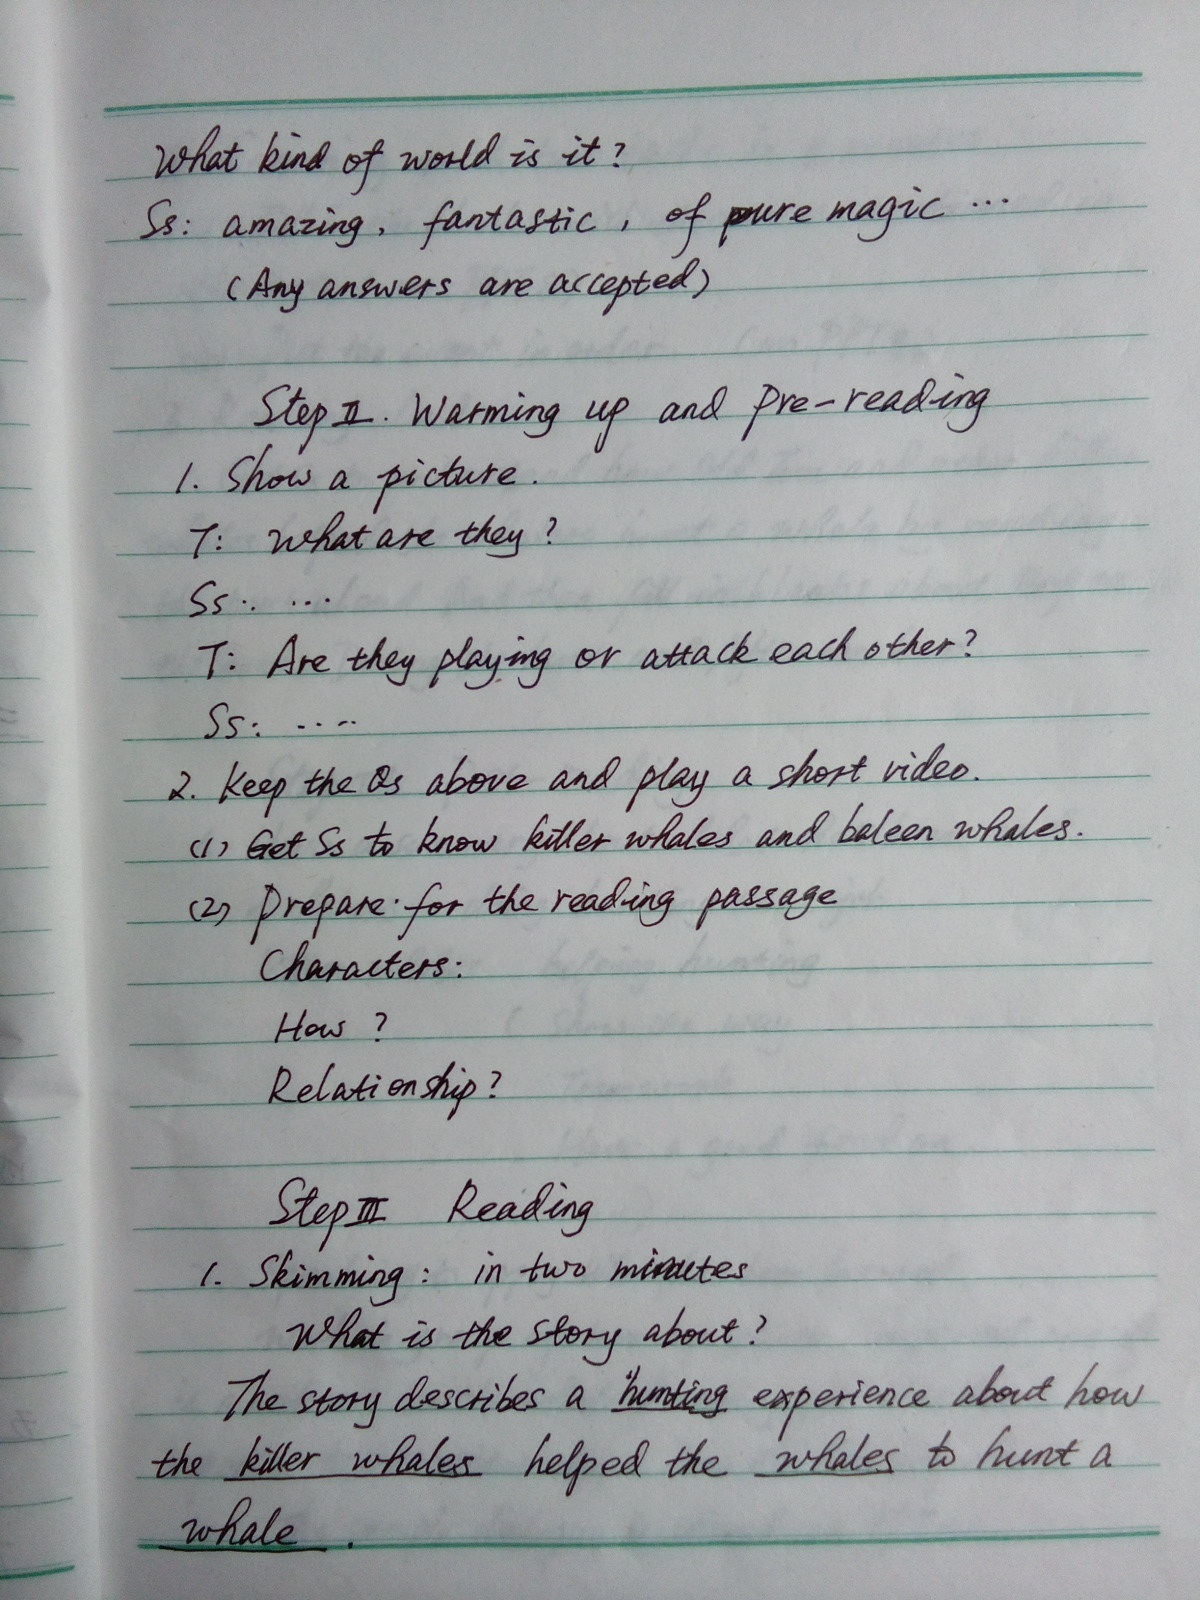 What kind of world is it?
Ss: amazing, fantastic, of pure magic ...
(Any answers are accepted)
Step II. Warming up and Pre-reading
1. Show a picture.
T: What are they?
Ss: ...
T: Are they playing or attack each other?
Ss: ....
2. Keep the Qs above and play a short video.
(1) Get Ss to know killer whales and baleen whales.
(2) Prepare for the reading passage
Characters:
How?
Relationship?
Step III Reading
1. Skimming: in two minutes
What is the story about?
The story describes a hunting experience about how
the killer whales helped the whales to hunt a
whale.